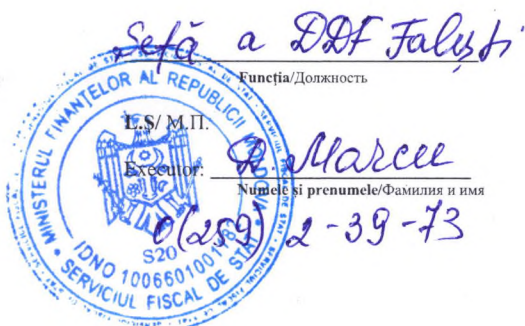 Șefă a DDF Fălești
Funcția/Должность
L.S/ М.П.
Executor: A. Marcu
Numele și prenumele/Фамилия и имя
0(259) 2-39-73
MINISTERUL FINANȚELOR AL REPUBLICII MOLDOVA
SERVICIUL FISCAL DE STAT
IDNO 1006601001182
S20